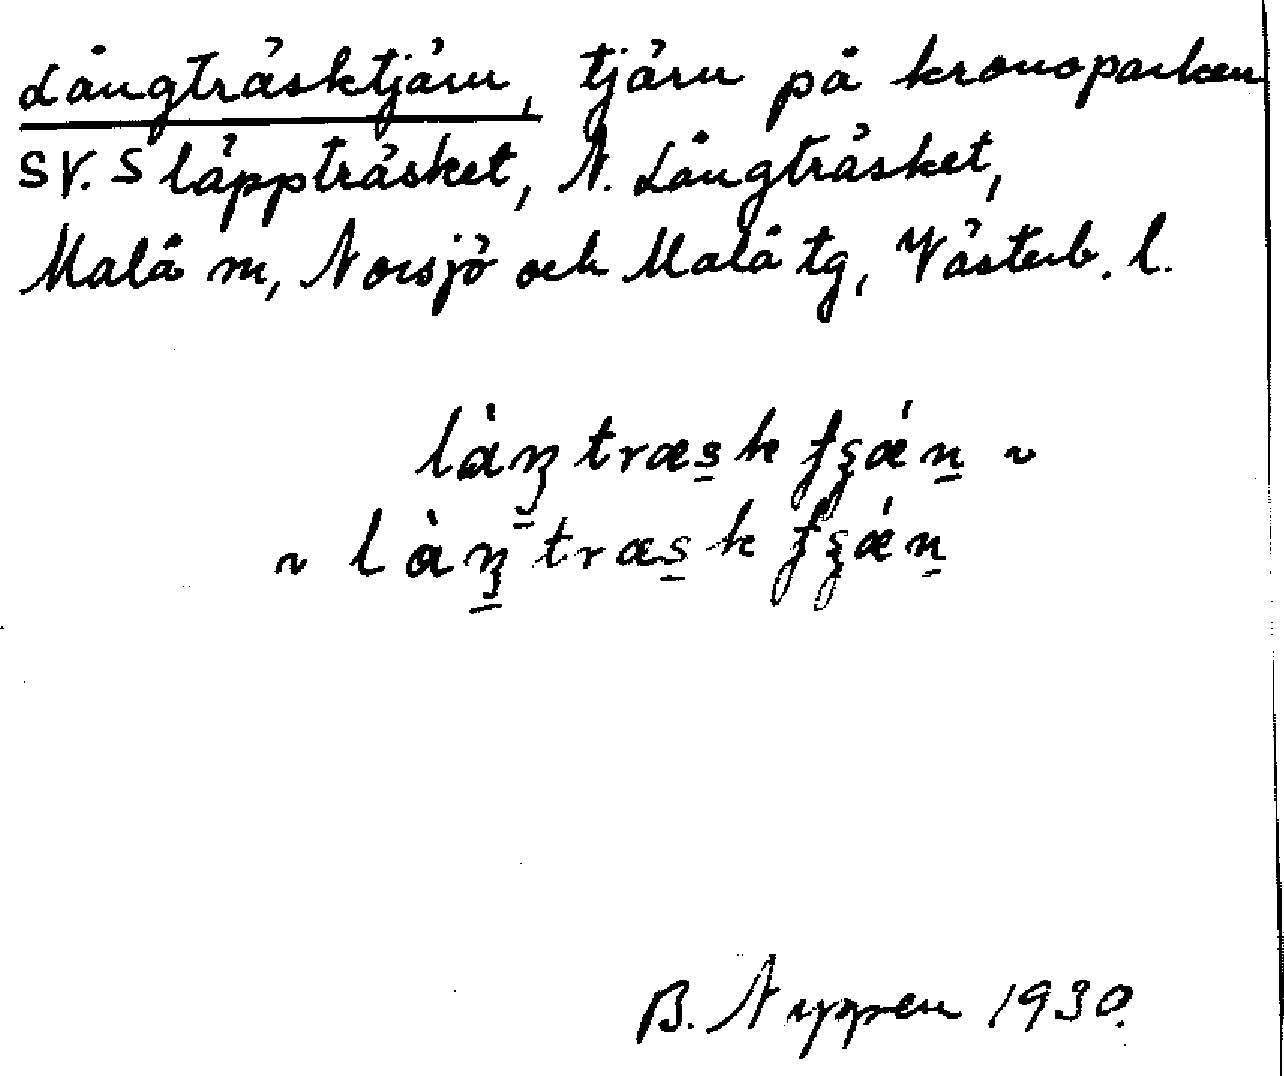 Långträsktjärn, tjärn på kronoparken
SV. Släppträsket, N. Långträsket,
Malå m, Norsjö och Malå tg, Västerb. l.
B. Nyppen 1930.